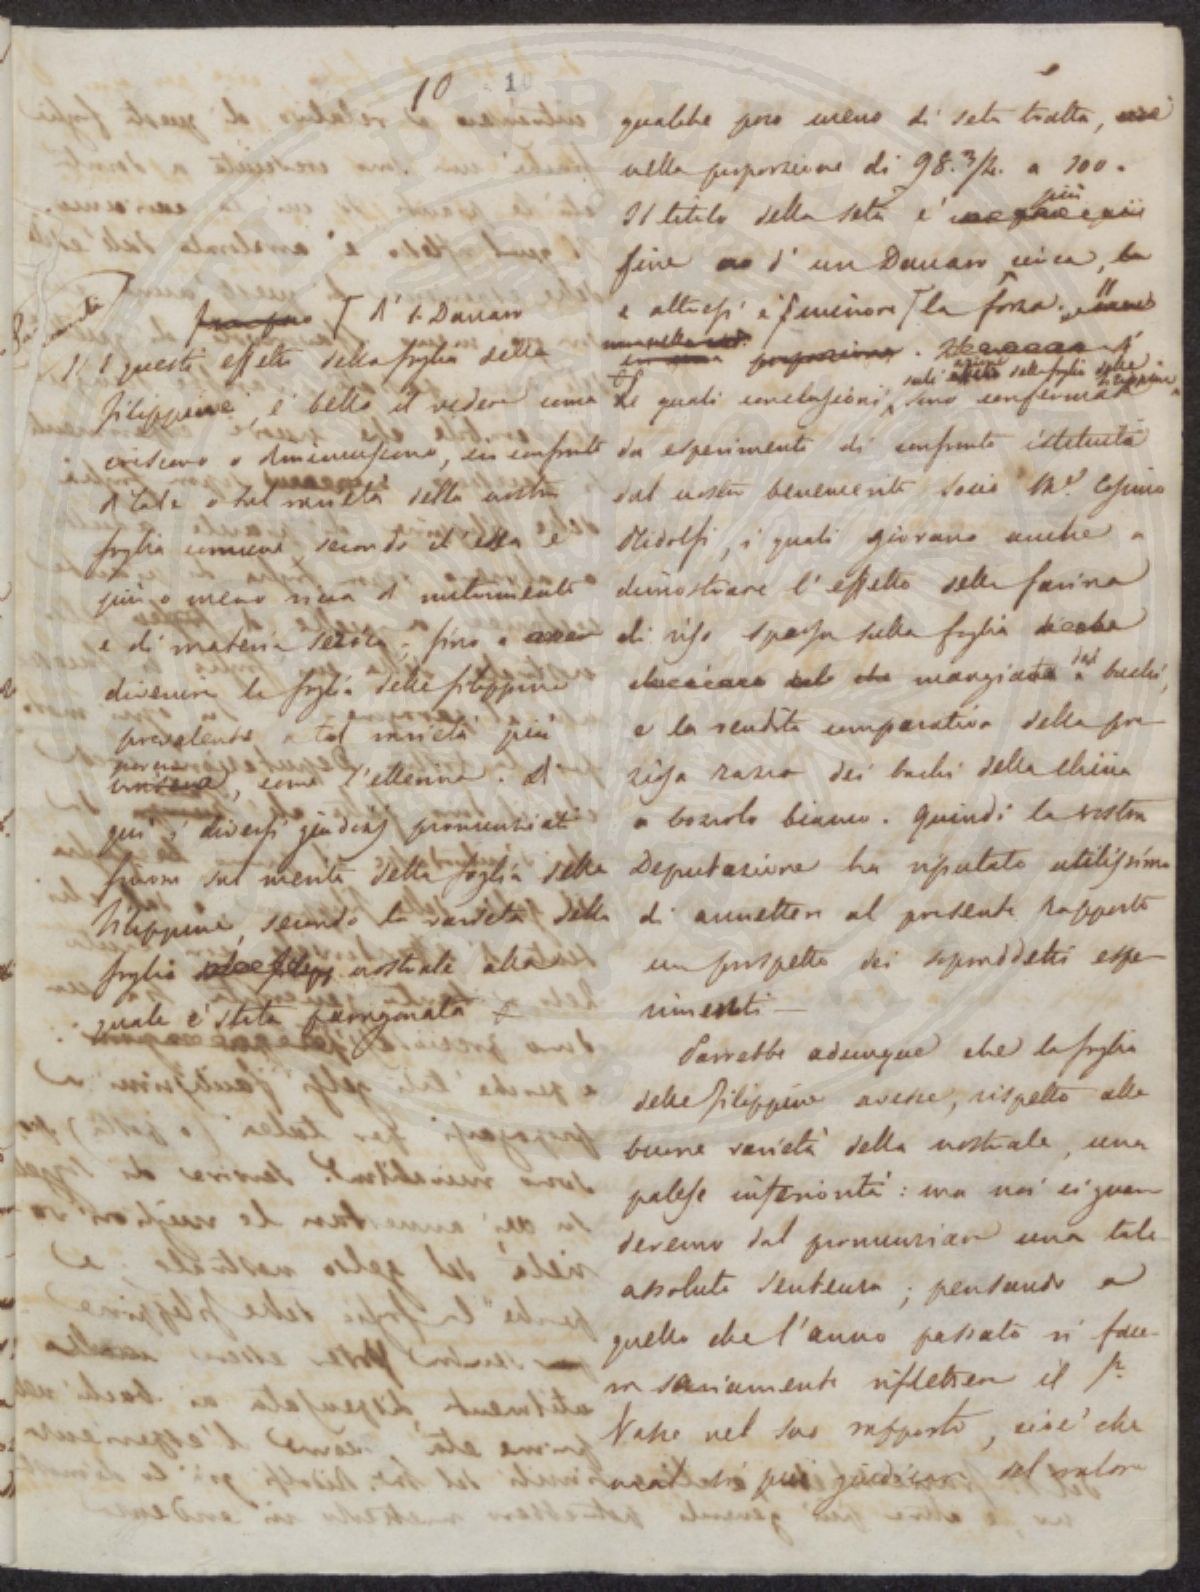 10 10
qualche poco meno di seta tratta,
nella proporzione di 98. 3/4. a 100.
Il titolo della seta è più
fine d'un Danaro circa,
e altresì è minore la forza.
Le quali conclusioni, sulla foglia delle Filippine, sono confermate
da esperimenti di confronto istituiti
dal nostro benemerito socio Mse. Cosimo
Ridolfi, i quali giovano anche a
dimostrare l'effetto della farina
di riso sparsa sulla foglia
mangiata dai bachi,
e la rendita comparativa della pre-
gisa razza dei bachi della China
a bozzolo bianco. Quindi la vostra
Deputazione ha reputato utilissimo
di annettere al presente Rapporto
un prospetto dei sopraddetti espe-
rimenti —
Parrebbe adunque che la foglia
delle Filippine avesse, rispetto alle
buone varietà della nostrale, una
palese inferiorità: ma noi ci guar-
deremo dal pronunziare una tale
assoluta sentenza; pensando a
quello che l'anno passato ci face-
va saviamente riflettere il Sr.
Nape nel suo rapporto, cioè che
mal si può giudicare del valore
d'1. Danaro
questi effetti della foglia delle
Filippine, è bello il vedere come
crescano o diminuiscano, in confronto
di tale o tal varietà della nostra
foglia comune secondo ch'essa è
più o meno ricca di nutrimento
e di materia serica; fino a
divenire la foglia delle filippine
prevalente a tal varietà più
povera, come l'ellenina. Di
qui i diversi giudizi pronunziati
furono sul merito della foglia delle
Filippine, secondo la varietà della
foglia nostrale alla
quale è stata paragonata